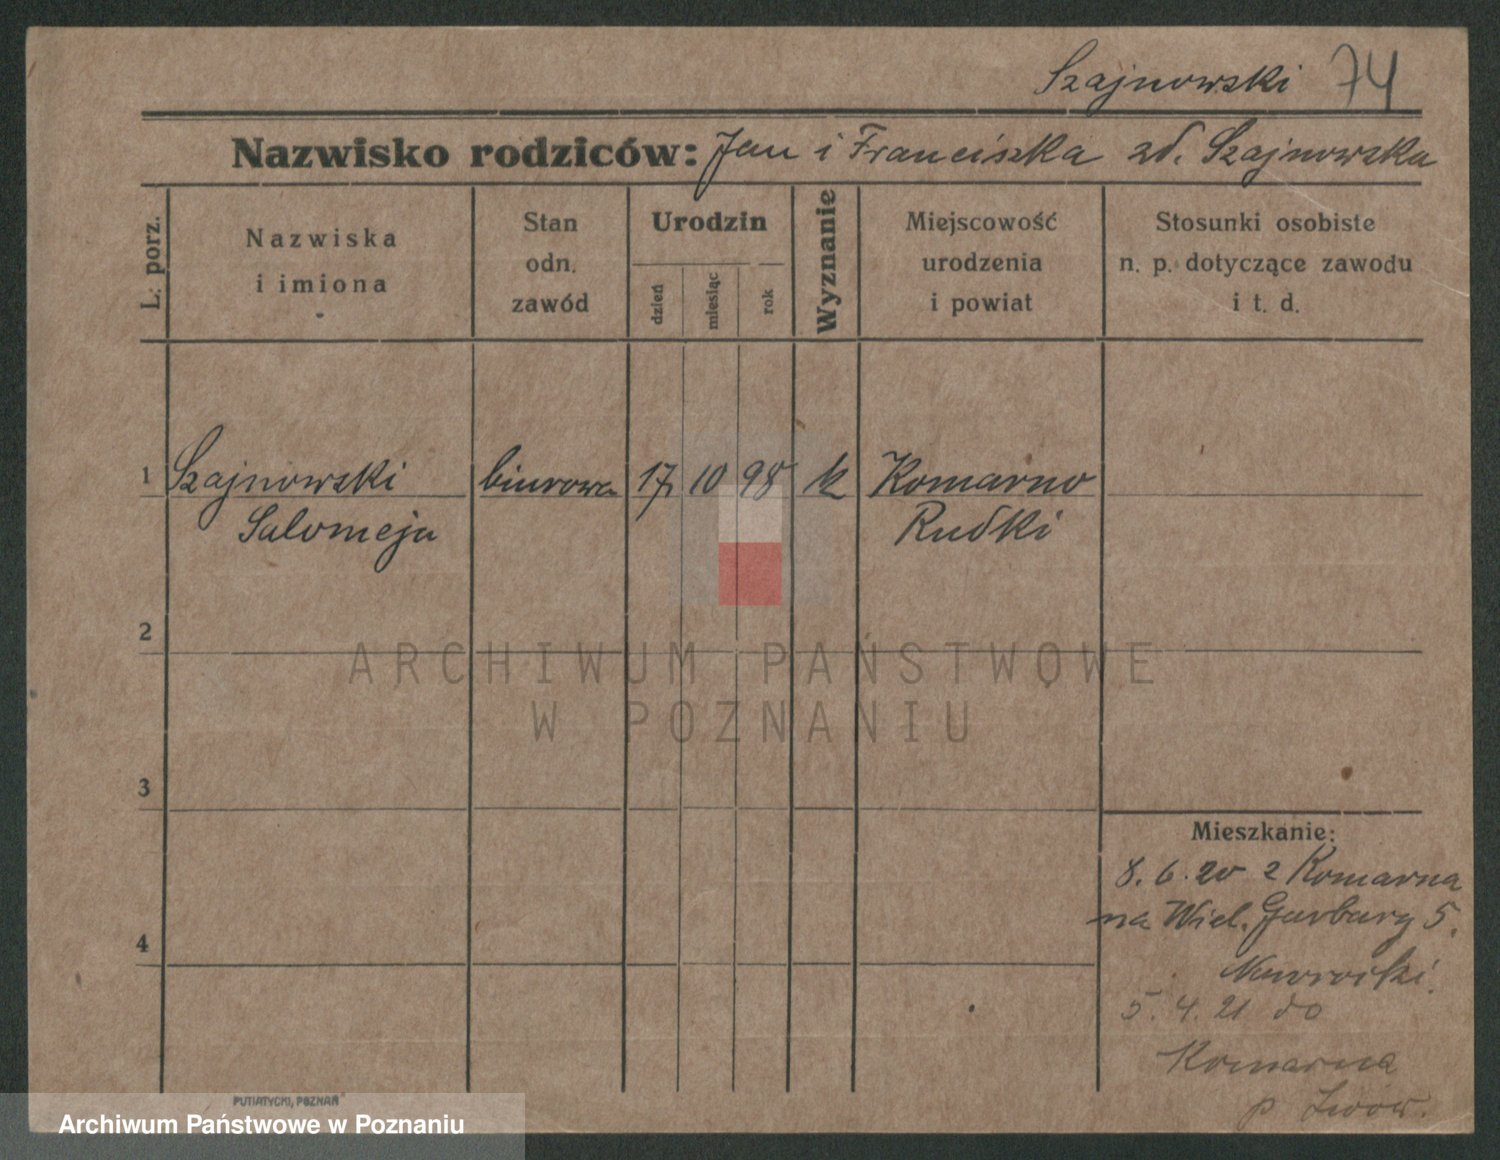 Szajnowski 74
Nazwisko rodziców: Jan i Franciszka zd. Szajnowska
L. porz.
Nazwiska
i imiona
Stan
odn.
zawód
Urodzin
dzień
miesiąc
rok
Wyznanie
Miejscowość
urodzenia
i powiat
Stosunki osobiste
n. p. dotyczące zawodu
i t. d.
1 Szajnowski biurowa 17 10 98 k Komarno
Salomeja Rudki
2
ARCHIWUM PAŃSTWOWE
W POZNANIU
3
Mieszkanie:
8. 6. 20 z Komarna
na Wiel. Garbary 5.
Nawrocki.
4
5. 4. 21 do
Komarna
p Lwów.
PUTIATYCKI, POZNAŃ
Archiwum Państwowe w Poznaniu